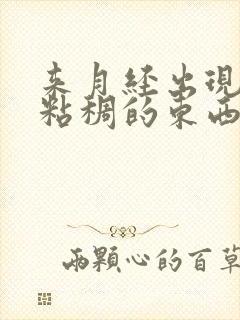 来月经出现
粘稠的东西
两颗心的百草